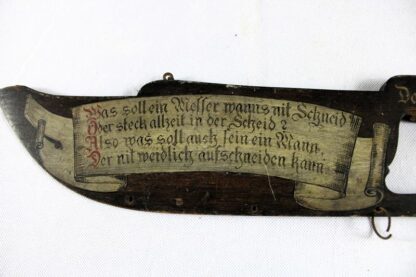 Was soll ein Messer wanns nit Schneid
Oder steck allzeit in der Scheid?
Also was soll auch sein ein Mann,
Der nit werdlich aufschneiden kann